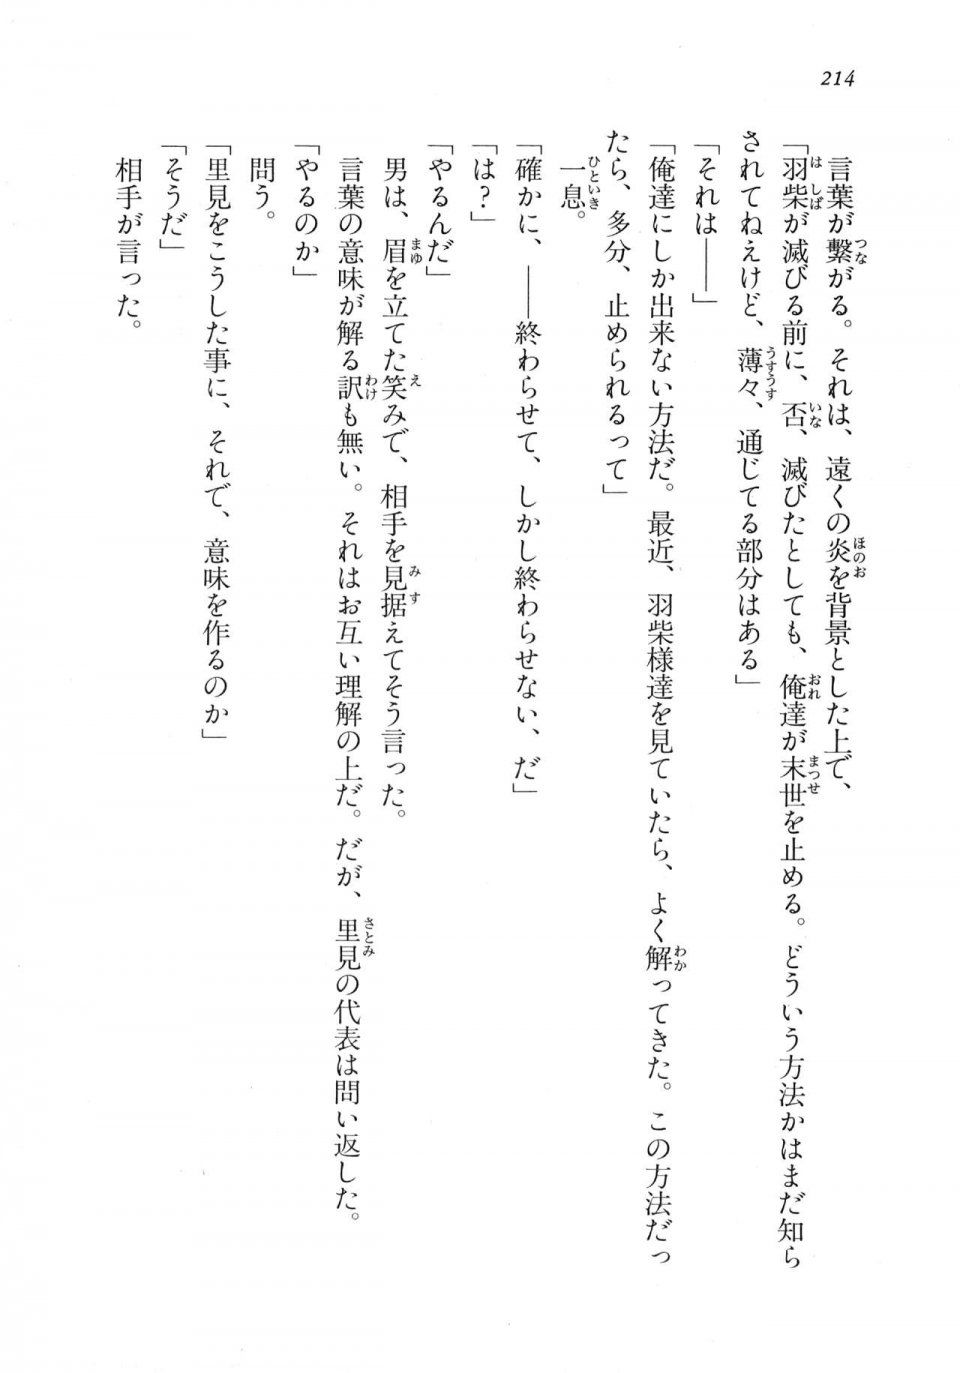 214
言葉が繋がる。それは、遠くの炎を背景とした上で、
「羽柴が滅びる前に、否、滅びたとしても、俺達が末世を止める。どういう方法かはまだ知ら
されてねえけど、薄々、通じてる部分はある」
「それは――」
「俺達にしか出来ない方法だ。最近、羽柴様達を見ていたら、よく解ってきた。この方法だっ
たら、多分、止められるって」
一息。
「確かに、――終わらせて、しかし終わらせない、だ」
「は？」
「やるんだ」
男は、眉を立てた笑みで、相手を見据えてそう言った。
言葉の意味が解る訳も無い。それはお互い理解の上だ。だが、里見の代表は問い返した。
「やるのか」
問う。
「里見をこうした事に、それで、意味を作るのか」
「そうだ」
相手が言った。